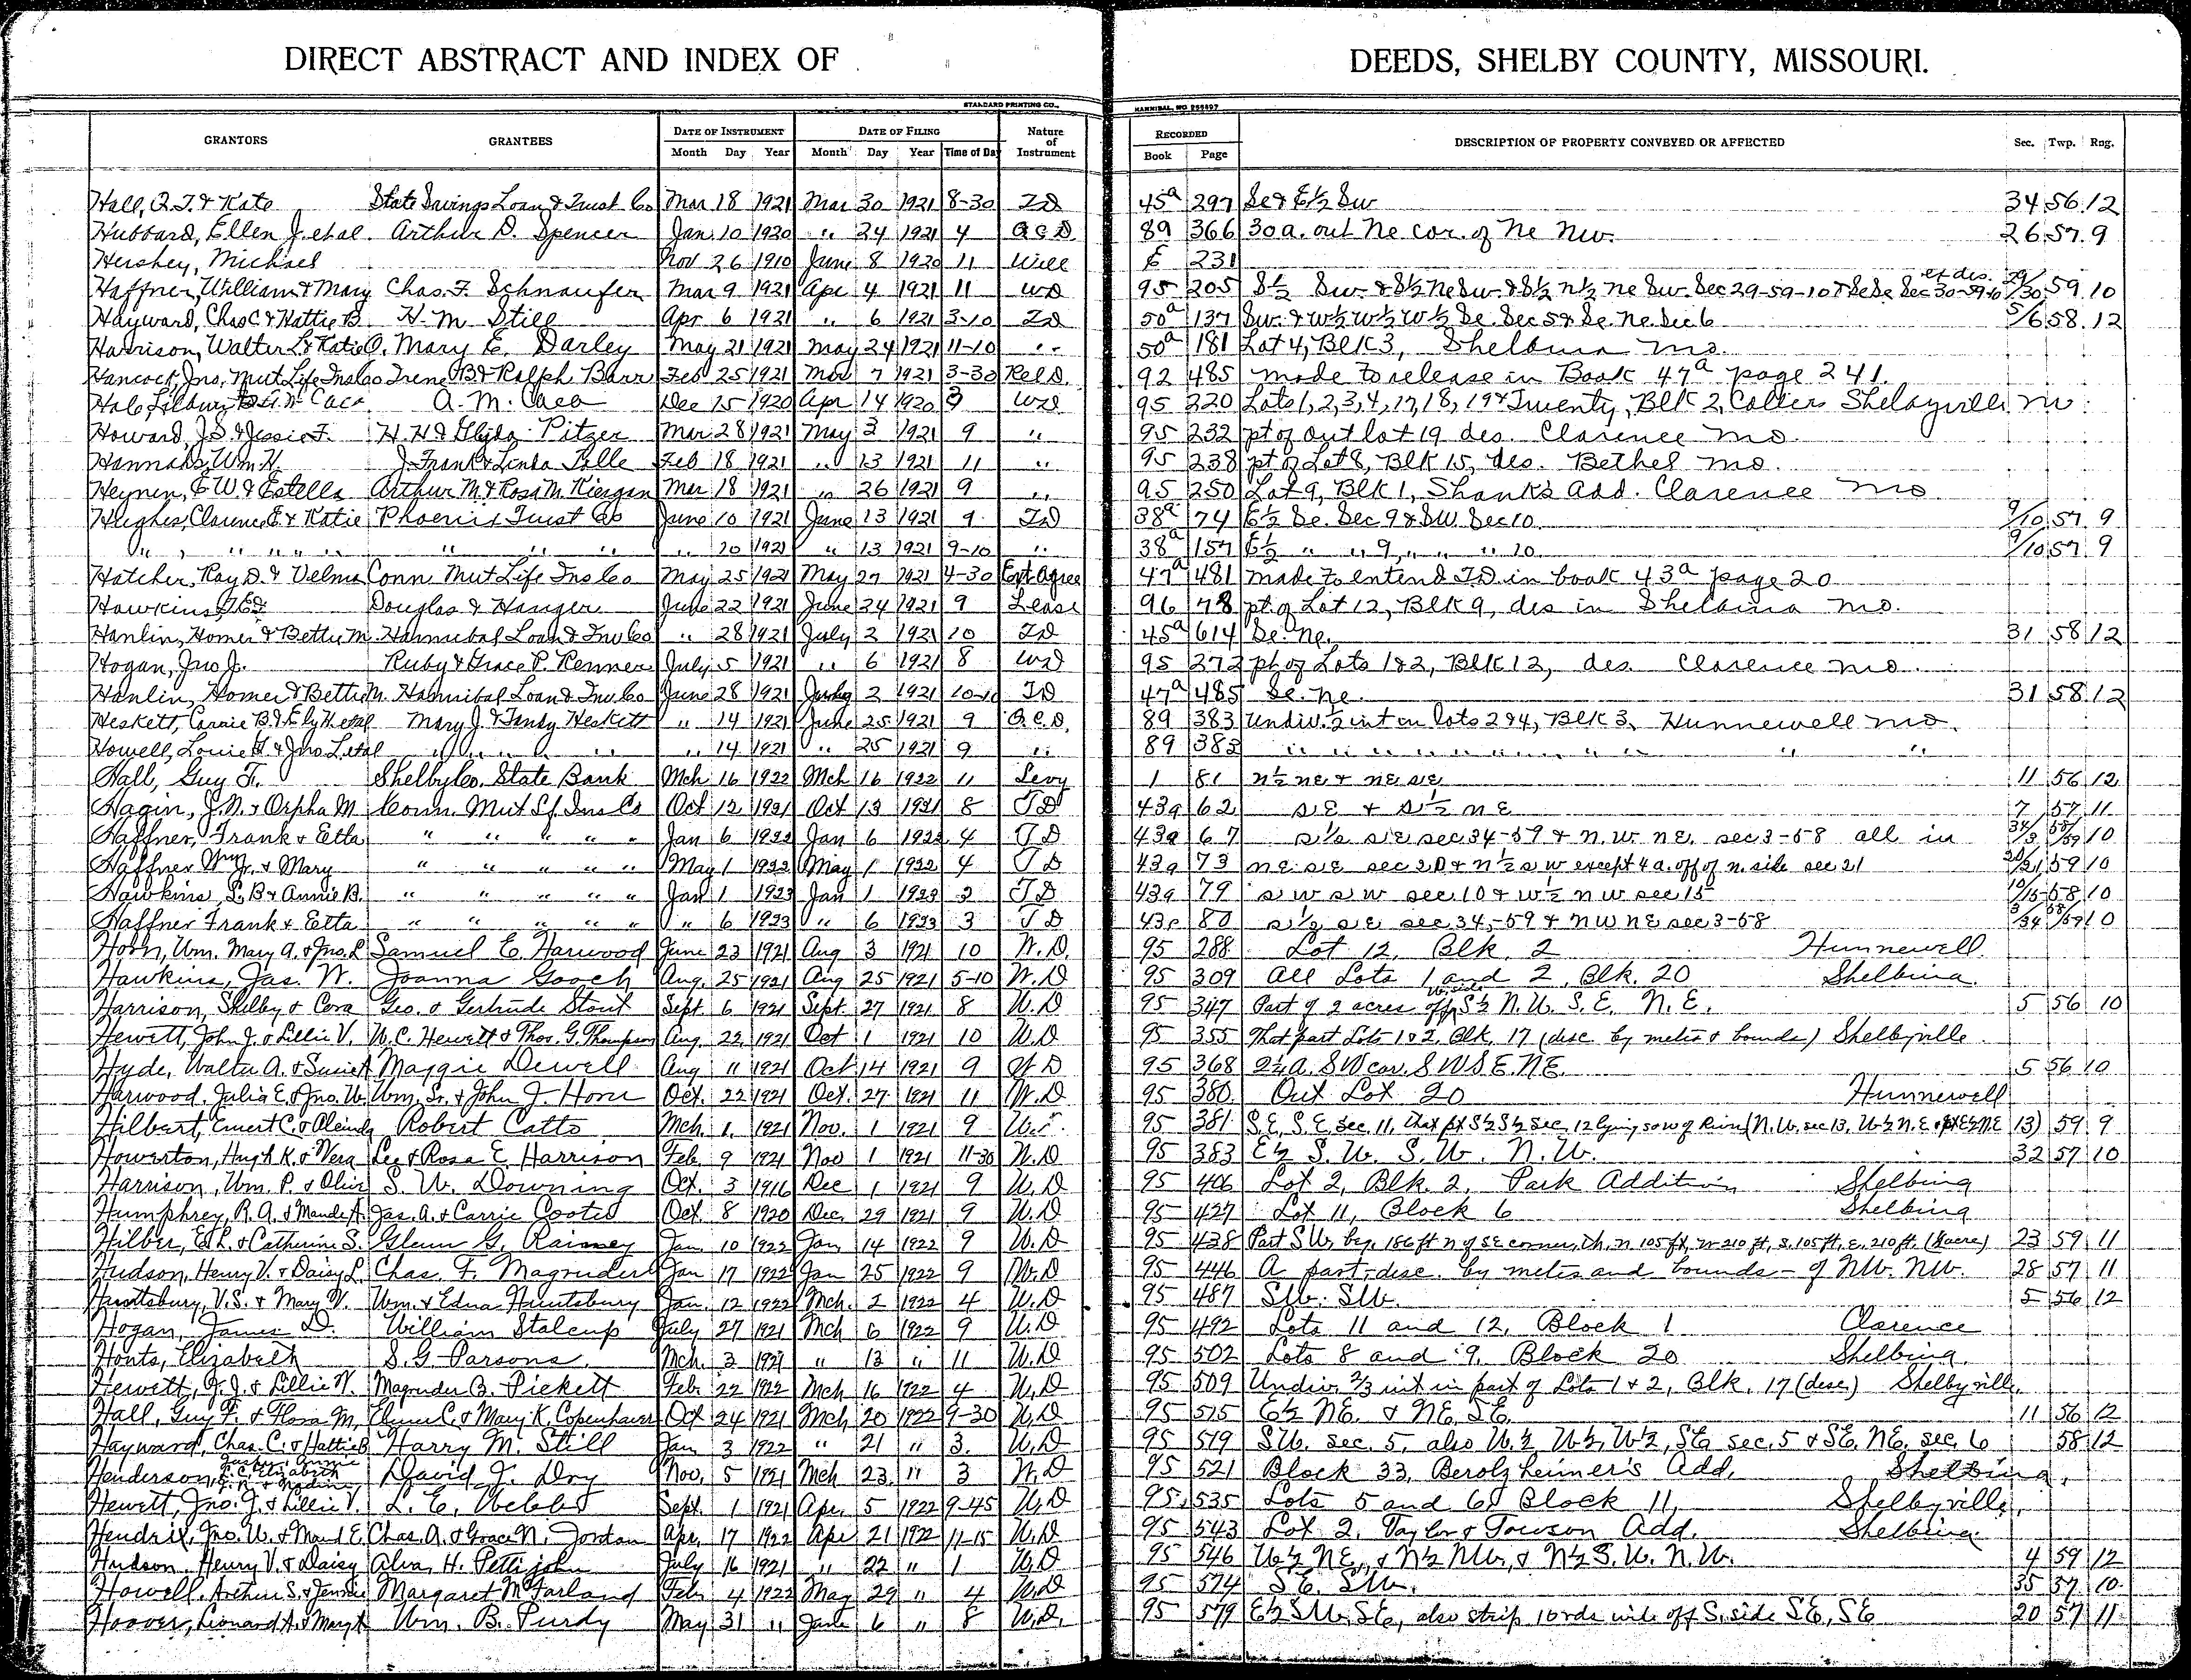 DIRECT ABSTRACT AND INDEX OF DEEDS, SHELBY COUNTY, MISSOURI.
STANDARD PRINTING CO., HANNIBAL, MO. 256497
GRANTORS GRANTEES DATE OF INSTRUMENT DATE OF FILING Nature of Instrument RECORDED DESCRIPTION OF PROPERTY CONVEYED OR AFFECTED Sec. Twp. Rng.
Month Day Year Month Day Year Time of Day Book Page
Hall, R.T. & Kate State Savings Loan & Trust Co Mar 18 1921 Mar 30 1921 8-30 TD 45a 297 Se & E½ Sw 34 56 12
Hubbard, Ellen J. et al. Arthur D. Spencer Jan 10 1920 " 24 1921 4 Q C D 89 366 30 a. out Ne cor. of Ne Nw. 26 57 9
Hershey, Michael Nov 26 1910 June 8 1920 11 Will E 231
Haffner, William & Mary Chas. F. Schnaufer Mar 9 1921 Apr 4 1921 11 WD 95 205 S½ Sw. & S½ Ne Sw. & S½ N½ Ne Sw. Sec 29-59-10 & Se Se Sec 30-59-10 ex des. 29/30 59 10
Hayward, Chas C & Hattie B H. M. Still Apr 6 1921 " 6 1921 3-10 TD 50a 137 Sw. & W½ W½ W½ Se. Sec 5 & Se. Ne. Sec 6 5/6 58 12
Harrison, Walter L & Katie O. Mary E. Darley May 21 1921 May 24 1921 11-10 " 50a 181 Lot 4, Blk 3, Shelbina Mo.
Hancock, Jno. Mut Life Ins Co Irene B & Ralph Barr Feb 25 1921 Mar 7 1921 3-30 Rel D. 92 485 made to release in Book 47a page 241.
A. M. Caca Dec 15 1920 Apr 14 1920 9 WD 95 220 Lots 1, 2, 3, 4, 17, 18, 19 & Twenty, Blk 2, Colliers Shelbyville Mo.
Howard, J.S. & Jessie F. H. H & Pitzer Mar 28 1921 May 3 1921 9 " 95 232 pt of out lot 19 des. Clarence Mo.
Hannahs, Wm H. J. Frank & Linda Polle Feb 18 1921 " 13 1921 11 " 95 238 pt of Lot 8, Blk 15, des. Bethel Mo.
Heynen, E W & Estella Arthur M & Rosa M. Kiergan Mar 18 1921 " 26 1921 9 " 95 250 Lot 9, Blk 1, Shanks Add. Clarence Mo
Hughes, Clarence E & Katie Phoenix Trust Co June 10 1921 June 13 1921 9 TD 38a 74 E½ Se. Sec 9 & SW. Sec 10 9/10 57 9
" " " " " " " " " 20 1921 " 13 1921 9-10 " 38a 157 E½ " " 9 " " " 10 9/10 57 9
Hatcher, Ray D. & Velma Conn. Mut Life Ins Co May 25 1921 May 27 1921 4-30 Ext Agree 47a 481 made to extend T.D. in book 43a page 20
Hawkins, Douglas & Hanger June 22 1921 June 24 1921 9 Lease 96 78 pt. of Lot 12, Blk 9, des in Shelbina Mo.
Hanlin, Homer & Bettie M. Hannibal Loan & Inv Co " 28 1921 July 2 1921 10 TD 45a 614 Se. Ne. 31 58 12
Hogan, Jno J. Ruby & Grace P. Renner July 5 1921 " 6 1921 8 WD 95 272 pt of Lots 1 & 2, Blk 12, des. Clarence Mo.
Hanlin, Homer & Bettie M. Hannibal Loan & Inv Co June 28 1921 July 2 1921 10-10 TD 47a 485 Se. Ne. 31 58 12
Heskett, Carrie B. & Ely H et al Mary J. & Tandy Heskett " 14 1921 June 25 1921 9 Q.C.D. 89 383 Undiv. ½ int in lots 2 & 4, Blk 3, Hunnewell Mo.
Howell, Louie H. & Jno L. et al " " " " " 14 1921 " 25 1921 9 " 89 383 " " " " " " " " " "
Hall, Guy F. Shelby Co. State Bank Mch 16 1922 Mch 16 1922 11 Levy 1 81 N½ NE & NE SE 11 56 12
Hagin, J.N. & Orpha M Conn. Mut Lf. Ins Co Oct 12 1921 Oct 13 1921 8 TD 43a 62 SE & S½ NE 7 57 11
Haffner, Frank & Etta " " " " " Jan 6 1922 Jan 6 1922 4 TD 43a 67 S½ SE sec 34-59 & N.W. NE. sec 3-58 all in 34/3 58/59 10
Haffner Wm Jr. & Mary " " " " " May 1 1922 May 1 1922 4 TD 43a 73 NE SE sec 20 & N½ SW except 4 a. off of n. side sec 21 20/21 59 10
Hawkins, L. B & Annie B. " " " " " Jan 1 1923 Jan 1 1923 3 TD 43a 79 SW SW sec 10 & W½ NW sec 15 10/15 58 10
Haffner Frank & Etta " " " " " " 6 1923 " 6 1923 3 TD 43a 80 S½ SE sec 34-59 & NW NE sec 3-58 3/34 58/59 10
Horn, Wm. Mary A. & Jno. L Samuel E. Harwood June 23 1921 Aug 3 1921 10 W.D. 95 288 Lot 12, Blk. 2 Hunnewell.
Hawkins, Jas. W. Joanna Gooch Aug. 25 1921 Aug 25 1921 5-10 W.D 95 309 All Lots 1 and 2, Blk. 20 Shelbina.
Harrison, Shelby & Cora Geo. & Gertrude Stout Sept. 6 1921 Sept. 27 1921 8 W.D 95 347 Part of 2 acres off W. side S½ N.W. S.E. N.E. 5 56 10
Hewett, John J. & Lillie V. W. C. Hewett & Thos. G. Thompson Aug. 22 1921 Oct 1 1921 10 W.D 95 355 That part Lots 1 & 2, Blk. 17 (disc by metes & bounds) Shelbyville.
Hyde, Walter A. & Susie A Maggie Dewell Aug 11 1921 Oct 14 1921 9 W D 95 368 2½ A. SW cor. S W S E. NE. 5 56 10
Harwood, Julia E. & Jno. W. Wm. Sr. & John J. Horn Oct. 22 1921 Oct. 27 1921 11 W.D 95 380 Out Lot 20 Hunnewell
Hilbert, Emert C. & Robert Catto Mch. 1 1921 Nov. 1 1921 9 95 381 S.E. S.E. sec. 11, that pt S½ S½ sec. 12 lying so w of River (N.W. sec 13, W½ N.E. & pt E½ NE 13) 59 9
Howerton, Hugh K. & Vera Lee & Rosa E. Harrison Feb. 9 1921 Nov 1 1921 11-30 W.D 95 383 E½ S.W. S.W. N.W. 32 57 10
Harrison, Wm. P. & Olive S. W. Downing Oct. 3 1916 Dec 1 1921 9 W.D 95 406 Lot 2, Blk. 2, Park Addition Shelbina
Humphrey, R. A. & Maude A. Jas. A. & Carrie Cootes Oct 8 1920 Dec. 29 1921 9 W.D 95 427 Lot 11, Block 6 Shelbina
Hilber, Ed L. & Catherine S. Glenn G. Rainey Jan. 10 1922 Jan 14 1922 9 W.D 95 438 Part S W. beg. 186 ft n of SE corner, th. n 105 ft, w 210 ft, s. 105 ft, e. 210 ft. 23 59 11
Hudson, Henry V. & Daisy L. Chas. F. Magruder Jan 17 1922 Jan 25 1922 9 W.D 95 446 A part, disc. by metes and bounds - of NW. NW. 28 57 11
Huntsbury, V.S. & Mary V. Wm. & Edna Huntsbury Jan. 12 1922 Mch. 2 1922 4 W.D 95 487 SW. SW. 5 56 12
Hogan, James D. William Stalcup July 27 1921 Mch 6 1922 9 W.D 95 492 Lots 11 and 12, Block 1 Clarence
Honts, Elizabeth S. G Parsons. Mch. 3 1921 " 13 " 11 W.D 95 502 Lots 8 and 9, Block 20 Shelbina.
Hewett, J. J. & Lillie V. Magruder B. Pickett Feb. 22 1922 Mch 16 1922 4 W.D 95 509 Undiv. 2/3 int in part of Lots 1 & 2, Blk. 17 (desc.) Shelbyville.
Hall, Guy F. & Flora M. Elmer C. & Mary K. Copenhaver Oct 24 1921 Mch 20 1922 9-30 W.D 95 515 E½ NE. & NE. SE. 11 56 12
Hayward, Chas. C. & Hattie B Harry M. Still Jan 3 1922 " 21 " 3. W.D 95 519 SW. sec. 5, also W.½ W½, W½, SE sec. 5 & SE. NE. sec. 6 58 12
Henderson, Annie Elizabeth Nadine David J. Dry Nov. 5 1921 Mch 23 " 3 W.D 95 521 Block 33, Berolzheimer's Add. Shelbina.
Hewett, Jno. J. & Lillie V. L. E. Webber Sept. 1 1921 Apr. 5 1922 9-45 W.D 95 535 Lots 5 and 6 Block 11, Shelbyville.
Hendrix, Jno. W. & Maud E. Chas. A. & Grace N. Jordan Apr. 17 1922 Apr 21 1922 11-15 W.D 95 543 Lot 2, Taylor & Towson Add. Shelbina.
Hudson, Henry V. & Daisy Alva H. Pettijohn July 16 1921 " 22 " 1 W.D 95 546 W½ NE. & N½ NW. & N½ S.W. N.W. 4 59 12
Howell, Arthur S. & Jennie Margaret McFarland Feb. 4 1922 May 29 " 4 W.D 95 574 SE. SW. 35 57 10
Hoover, Leonard A. & Mary A Wm. B. Purdy May 31 " June 6 " 8 W.D. 95 579 E½ SW. SE, also strip 10 rds wide off S. side SE, SE 20 57 11